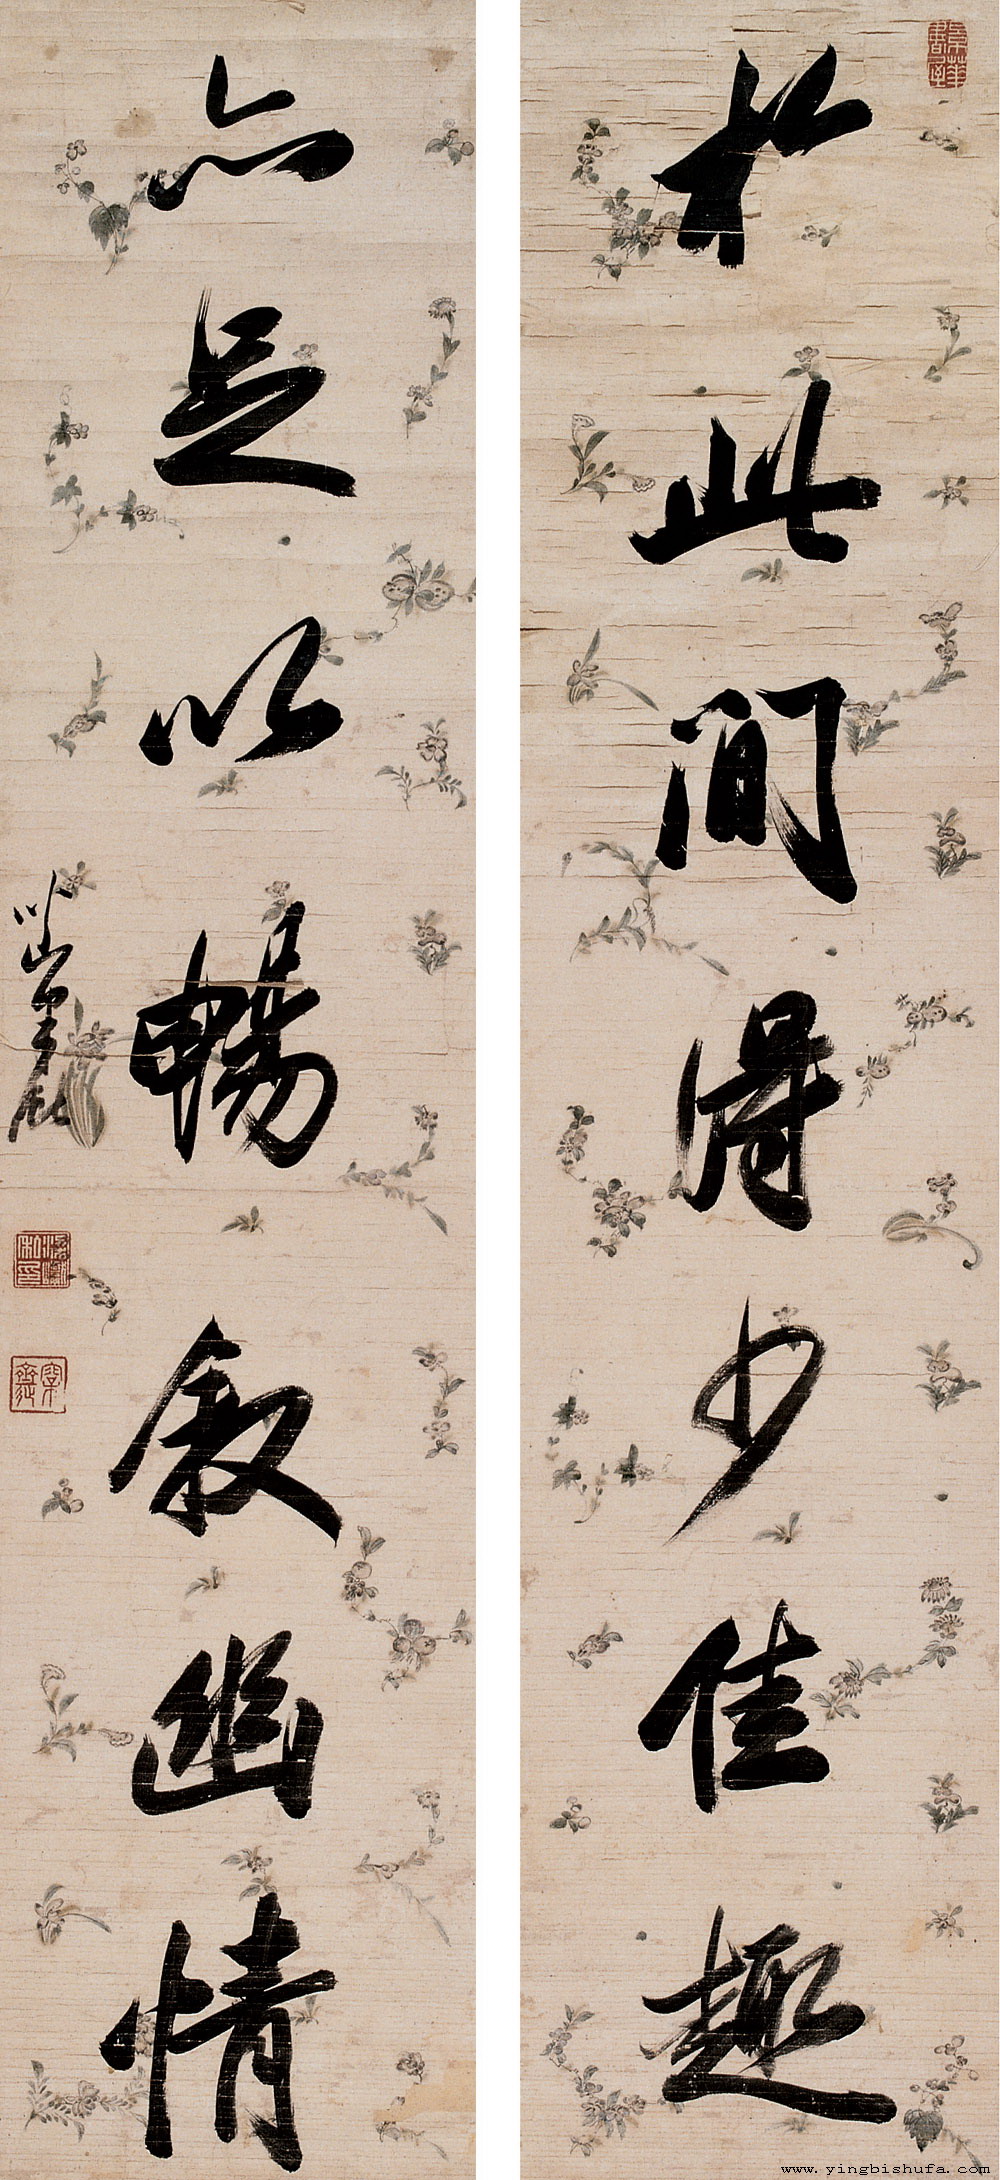 於此間得少佳趣
亦足以暢叙幽情
www.yingbishufa.com